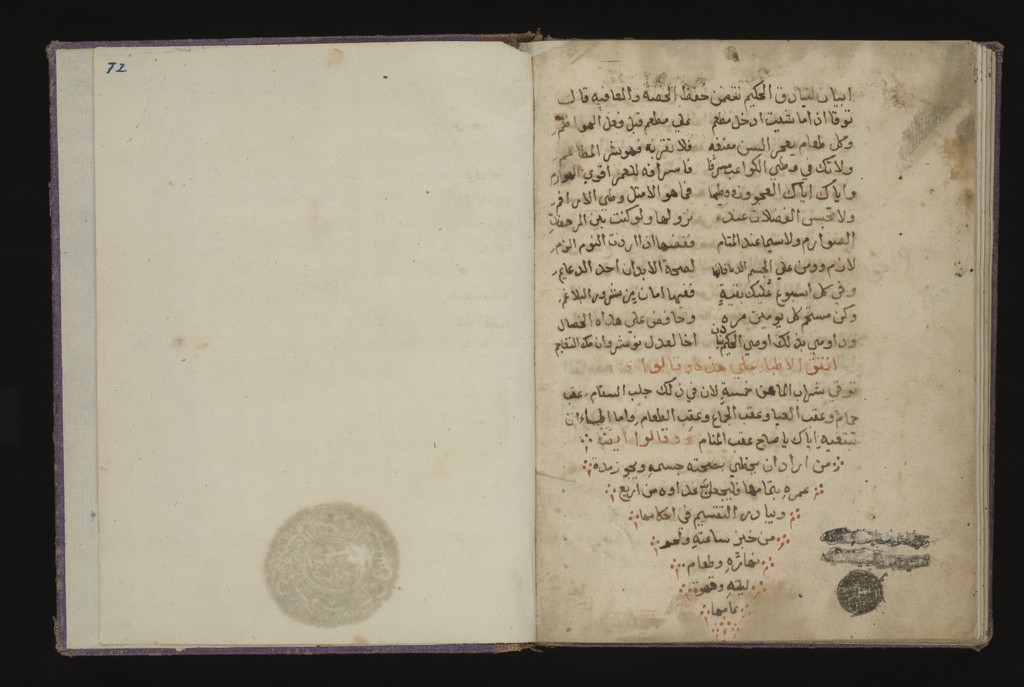 72
ابيات لتيادق الحكيم تتضمن حفظ الصحة والعافيه قال
توقا اذا ما شيت ادخال مطعم على مطعم قبل وفعل الهواظم
وكل طعام يعجز السن مضغه فلا تقربه فهو شر المطاعم
ولا تك في وطي الكواعب مسرفا فاسرافه للعمر اقوي الهوادم
واياك اياك العجوز ووطيها فما هو الا مثل وطي الاراقم
ولا تحبس الفضلات عند نزولها ولو كنت بين المرهفات
الصوارم ولا سيما عند المنام اذا اردت النوم الزم
علي الجسم لصحة الابدان احد الدعايم
وفي كل اسبوع عليك بقية ففيها امان من شرور البلاغم
وكن مستحم كل يومين مره وحافض علي هذه الخصال
بذلك اوصي الحكيم اخا العدل نوشروان
اتفق الاطباء علي هذه وقالوا
توقي شراب الما من خمسة لان في ذلك جلب السقام عقب
حمام وعقب العيا وعقب الجماع وعقب الطعام واما
اياك يا صاح عقب المنام وقالوا ايضا
من اراد ان يحظي بصحته جسمه ويجوز مدة
عمره بتمامها فليجعل غداوه من اربع
ويبادر التقسيم في احكامها
من خبز ساعته ولحم
نهاره وطعام
ليلته وقهوة
عامها